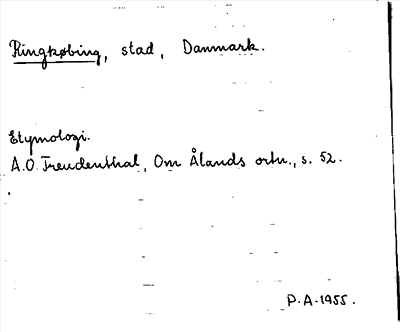 Ringkøbing, stad, Danmark.
Etymologi.
A.O. Freudenthal, Om Ålands ortn., s. 52.
P.A. 1955.